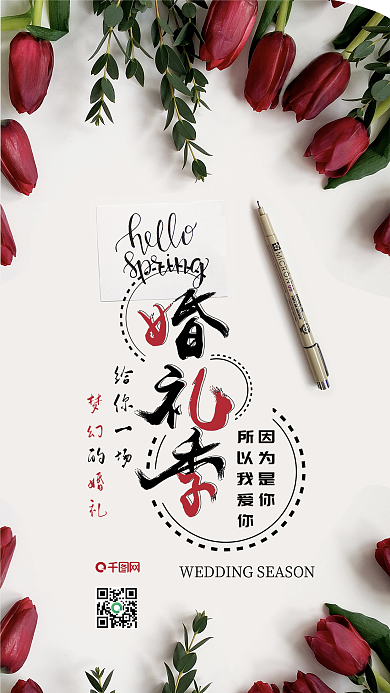 hello
spring
婚礼季
给你一场
梦幻的婚礼
因为是你
所以我爱你
千图网
WEDDING SEASON
MICRON